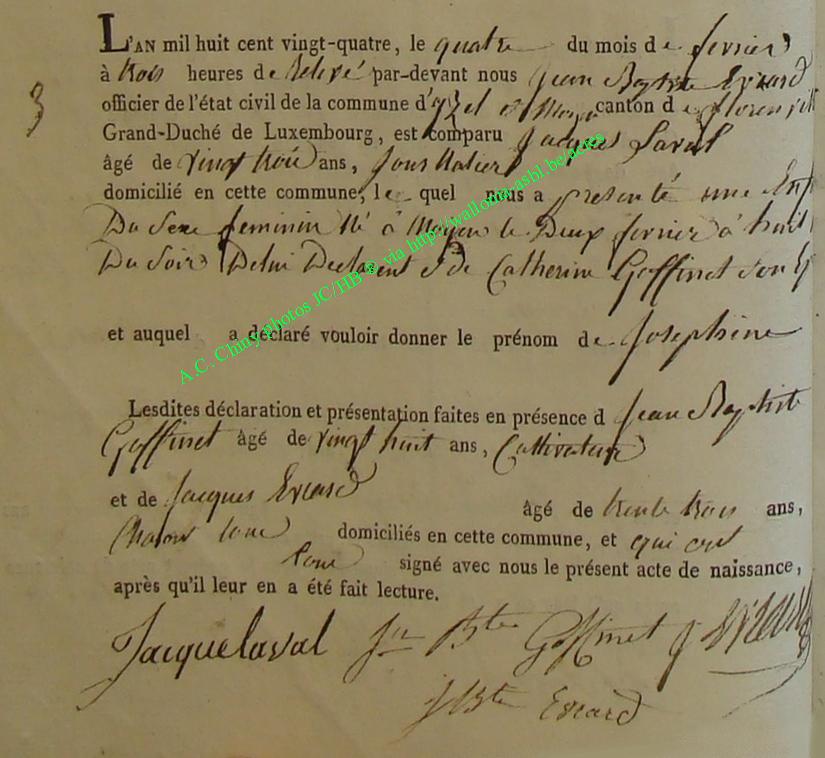 3
L'AN mil huit cent vingt-quatre, le quatre du mois de fevrier
à trois heures de Relevé par-devant nous Jean Baptiste Evrard
officier de l'état civil de la commune d'yzel et Moyen canton de florenvill
Grand-Duché de Luxembourg, est comparu Jacques Laval
âgé de vingt trois ans, Journalier
domicilié en cette commune, le quel nous a presenté une Enf
Du Sexe feminin Né à Moyen le Deux fevrier à huit
Du Soir De lui Declarent & de Catherine Goffinet Son Ep
et auquel a déclaré vouloir donner le prénom de Josephine
Lesdites déclaration et présentation faites en présence d Jean Baptiste
Goffinet âgé de vingt huit ans, Cultivateur
et de Jacques Evrard
âgé de trente trois ans,
domiciliés en cette commune, et qui ont
tous signé avec nous le présent acte de naissance,
après qu'il leur en a été fait lecture.
Jacque laval Jn Bte Goffinet J Evrard
J Bte Evrard
A.C. Chiny photos JC/HB © via http://wallonia-asbl.be/actes